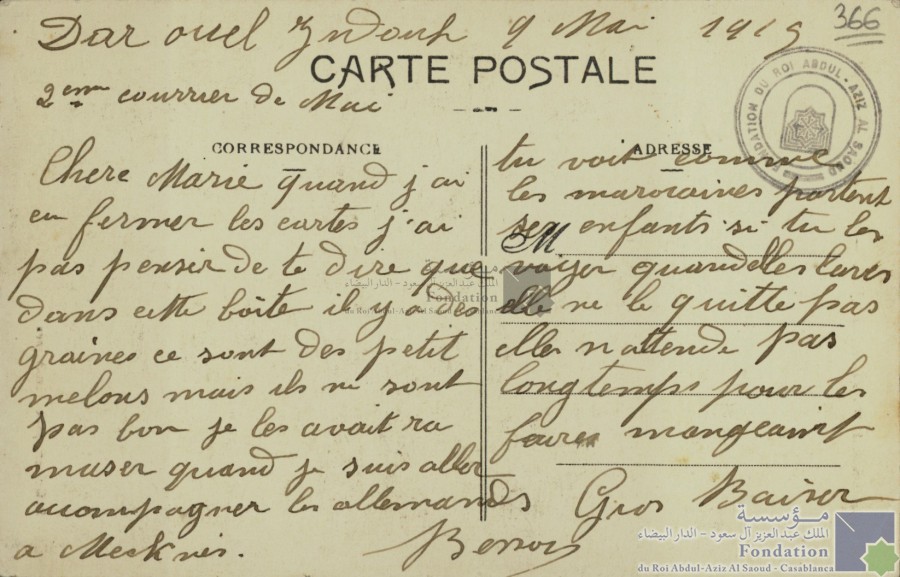 366
Dar ouel 9 Mai 1919
CARTE POSTALE
2eme courrier de Mai
FONDATION DU ROI ABDUL-AZIZ AL SAOUD
CORRESPONDANCE
Chere Marie quand j'ai
en fermer les cartes j'ai
pas penser de te dire que
dans cette boîte il y a des
graines ce sont des petit
melons mais ils ne sont
pas bon je les avait ra
masser quand je suis aller
accompagner les allemands
a Meknès.
ADRESSE
tu voit comme
les marocaines portent
ses enfants si tu les
M
voyer quand elles laves
elle ne le quitte pas
elles n'attende pas
longtemps pour les
faire mangeaint
Gros Baiser
مؤسسة
الملك عبد العزيز آل سعود - الدار البيضاء
Fondation
du Roi Abdul-Aziz Al Saoud - Casablanca
مؤسسة
الملك عبد العزيز آل سعود - الدار البيضاء
Fondation
du Roi Abdul-Aziz Al Saoud - Casablanca